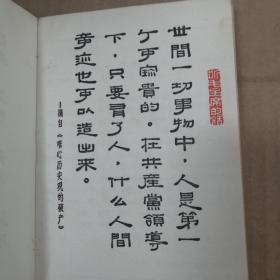 听毛主席的话
世間一切事物中，人是第一
个可寳貴的。在共產黨領導
下，只要有了人，什么人間
奇迹也可以造出来。
—摘自《唯心历史观的破产》